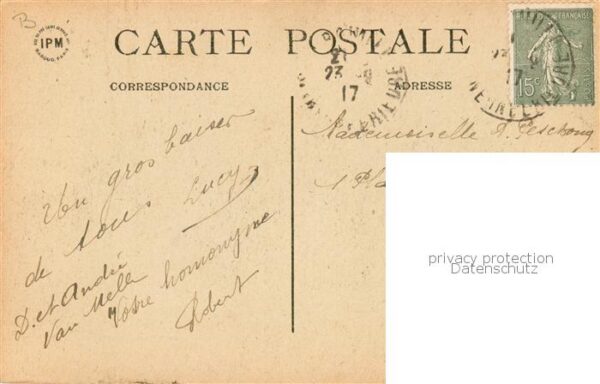 IPM
CARTE POSTALE
CORRESPONDANCE
ADRESSE
FRANÇAISE
15c
23
17
Mademoiselle A.
1 Pla
Un gros baiser
de tous Lucy
D. et André
Van Melle
Votre homonyme
Robert
privacy protection
Datenschutz